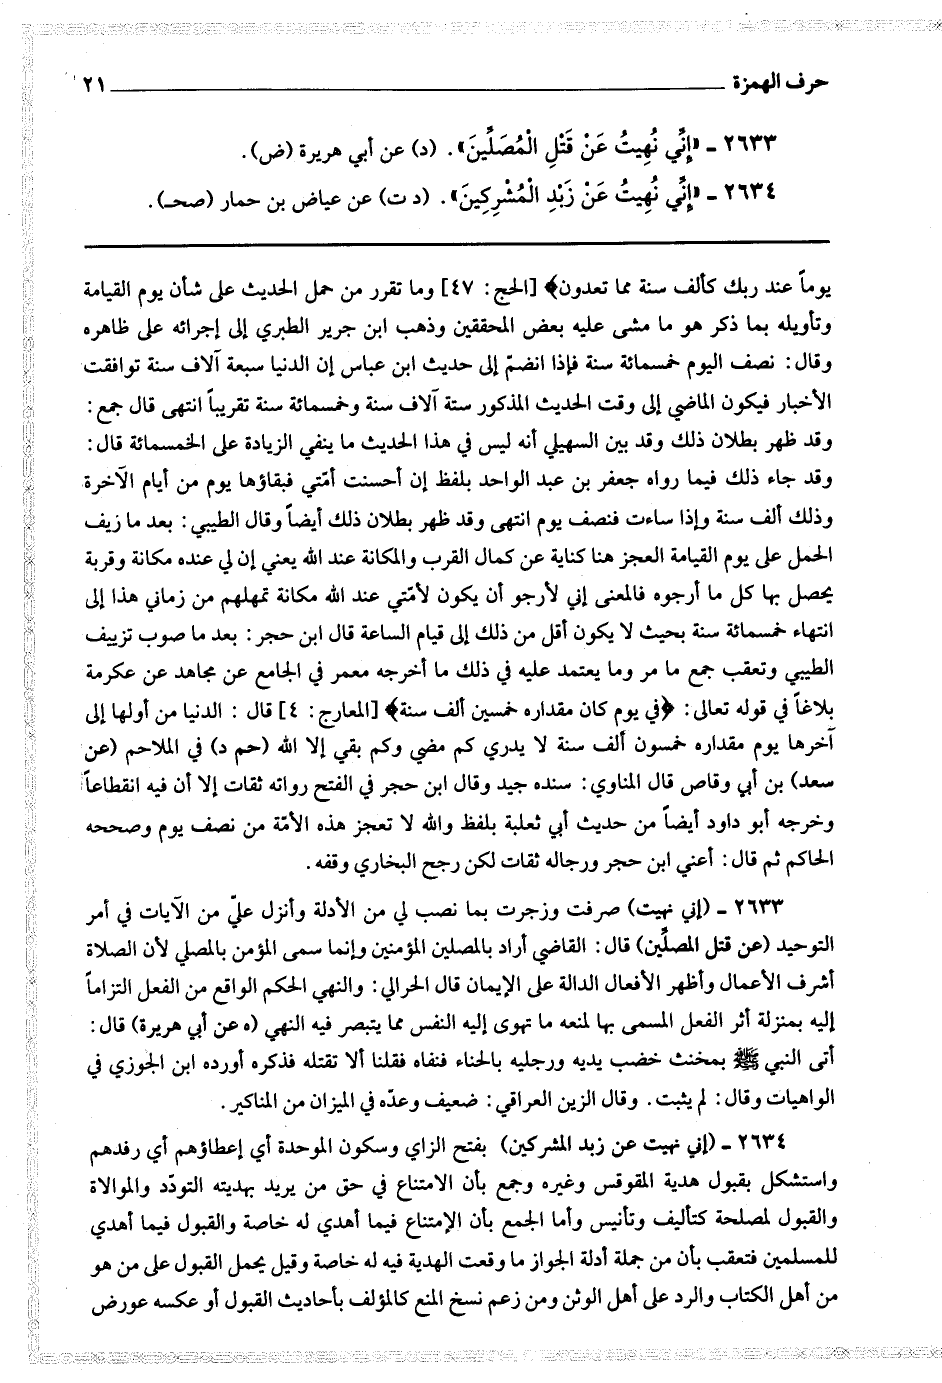 حرف الهمزة ٢١
٢٦٣٣ ـ «إِنِّي نُهِيتُ عَنْ قَتْلِ الْمُصَلِّينَ». (د) عن أبي هريرة (ض).
٢٦٣٤ ـ «إِنِّي نُهِيتُ عَنْ زَبْدِ الْمُشْرِكِينَ». (د ت) عن عياض بن حمار (صحـ).
يوماً عند ربك كألف سنة مما تعدون﴾ [الحج: ٤٧] وما تقرر من حمل الحديث على شأن يوم القيامة
وتأويله بما ذكر هو ما مشى عليه بعض المحققين وذهب ابن جرير الطبري إلى إجرائه على ظاهره
وقال: نصف اليوم خمسمائة سنة فإذا انضمّ إلى حديث ابن عباس إن الدنيا سبعة آلاف سنة توافقت
الأخبار فيكون الماضي إلى وقت الحديث المذكور ستة آلاف سنة وخمسمائة سنة تقريباً انتهى قال جمع:
وقد ظهر بطلان ذلك وقد بين السهيلي أنه ليس في هذا الحديث ما ينفي الزيادة على الخمسمائة قال:
وقد جاء ذلك فيما رواه جعفر بن عبد الواحد بلفظ إن أحسنت أمّتي فبقاؤها يوم من أيام الآخرة
وذلك ألف سنة وإذا ساءت فنصف يوم انتهى وقد ظهر بطلان ذلك أيضاً وقال الطيبي: بعد ما زيف
الحمل على يوم القيامة العجز هنا كناية عن كمال القرب والمكانة عند الله يعني إن لي عنده مكانة وقربة
يحصل بها كل ما أرجوه فالمعنى إني لأرجو أن يكون لأمّتي عند الله مكانة تمهلهم من زماني هذا إلى
انتهاء خمسمائة سنة بحيث لا يكون أقل من ذلك إلى قيام الساعة قال ابن حجر: بعد ما صوب تزييف
الطيبي وتعقب جمع ما مر وما يعتمد عليه في ذلك ما أخرجه معمر في الجامع عن مجاهد عن عكرمة
بلاغاً في قوله تعالى: ﴿في يوم كان مقداره خمسين ألف سنة﴾ [المعارج: ٤] قال: الدنيا من أولها إلى
آخرها يوم مقداره خمسون ألف سنة لا يدري كم مضي وكم بقي إلا الله (حم د) في الملاحم (عن
سعد) بن أبي وقاص قال المناوي: سنده جيد وقال ابن حجر في الفتح رواته ثقات إلا أن فيه انقطاعاً
وخرجه أبو داود أيضاً من حديث أبي ثعلبة بلفظ والله لا تعجز هذه الأمّة من نصف يوم وصححه
الحاكم ثم قال: أعني ابن حجر ورجاله ثقات لكن رجح البخاري وقفه.
٢٦٣٣ ـ (إني نهيت) صرفت وزجرت بما نصب لي من الأدلة وأنزل عليّ من الآيات في أمر
التوحيد (عن قتل المصلِّين) قال: القاضي أراد بالمصلين المؤمنين وإنما سمى المؤمن بالمصلي لأن الصلاة
أشرف الأعمال وأظهر الأفعال الدالة على الإيمان قال الحرالي: والنهي الحكم الواقع من الفعل التزاماً
إليه بمنزلة أثر الفعل المسمى بها لمنعه ما تهوى إليه النفس مما يتبصر فيه النهي (ه عن أبي هريرة) قال:
أتى النبي ﷺ بمخنث خضب يديه ورجليه بالحناء فنفاه فقلنا ألا تقتله فذكره أورده ابن الجوزي في
الواهيات وقال: لم يثبت. وقال الزين العراقي: ضعيف وعدّه في الميزان من المناكير.
٢٦٣٤ ـ (إني نهيت عن زبد المشركين) بفتح الزاي وسكون الموحدة أي إعطاؤهم أي رفدهم
واستشكل بقبول هدية المقوقس وغيره وجمع بأن الامتناع في حق من يريد بهديته التودّد والموالاة
والقبول لمصلحة كتأليف وتأنيس وأما الجمع بأن الإمتناع فيما أهدي له خاصة والقبول فيما أهدي
للمسلمين فتعقب بأن من جملة أدلة الجواز ما وقعت الهدية فيه له خاصة وقيل يحمل القبول على من هو
من أهل الكتاب والرد على أهل الوثن ومن زعم نسخ المنع كالمؤلف بأحاديث القبول أو عكسه عورض